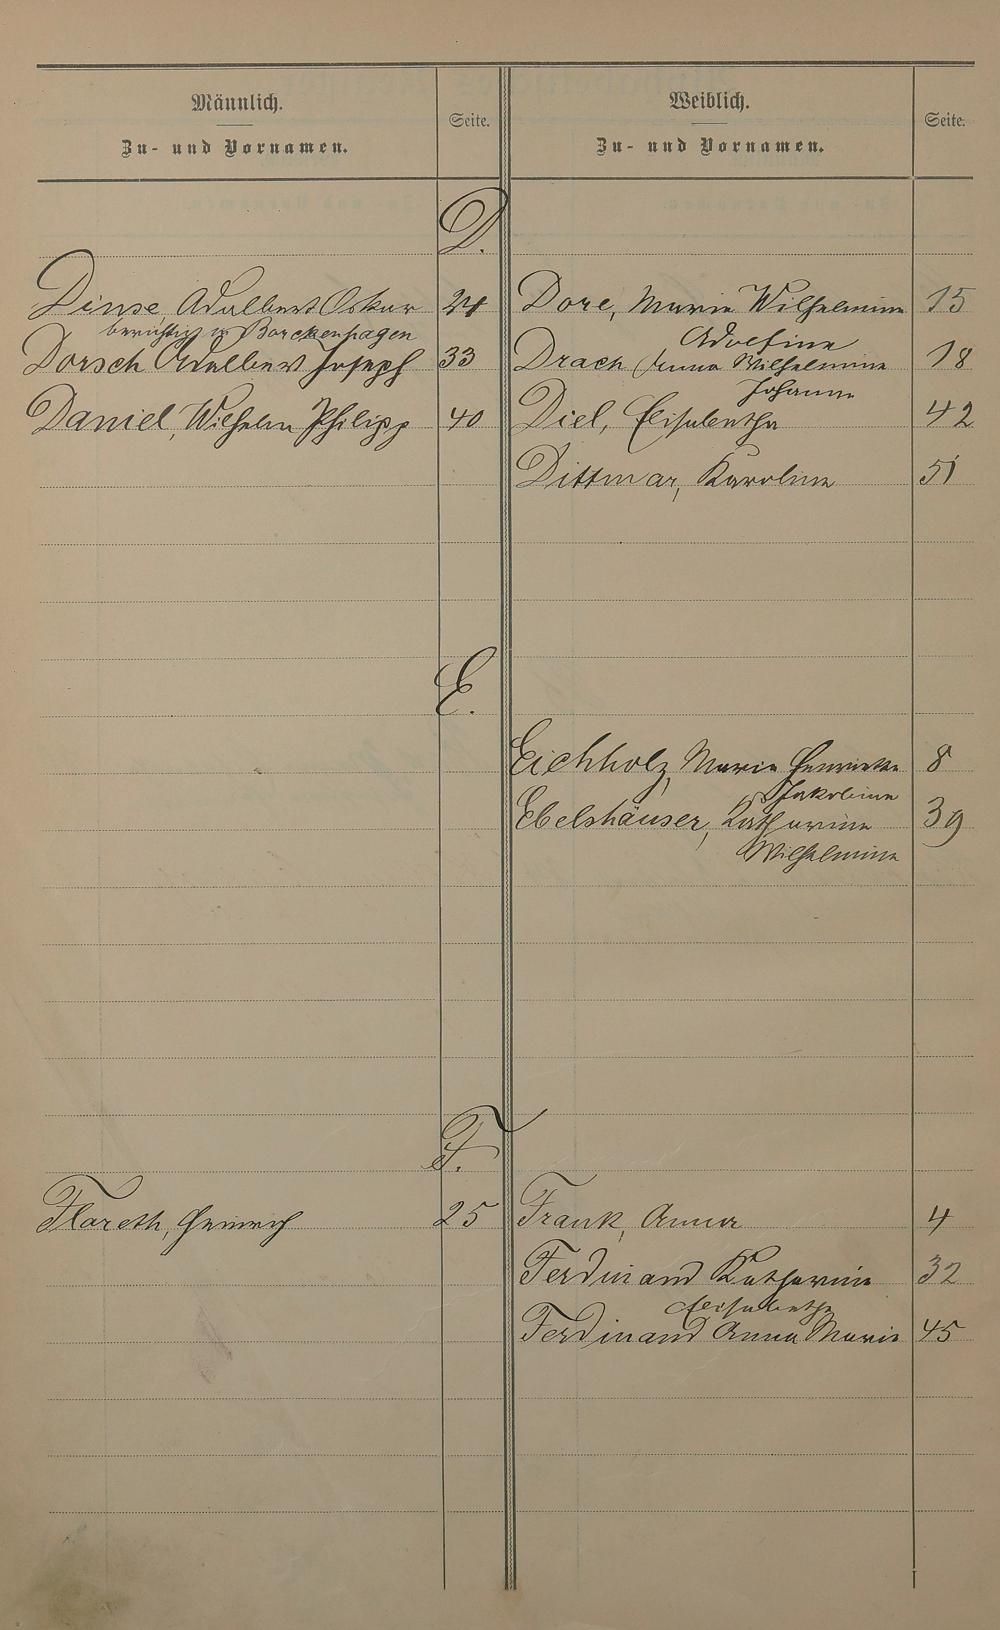 Männlich.
Zu- und Vornamen.
Seite.
Weiblich.
Zu- und Vornamen.
Seite.
D.
Dinse, Adalbert Oskar 24
berichtigt in Borckenhagen
Dorsch Adalbert Joseph 33
Daniel, Wilhelm Philipp 40
Dore, Maria Wilhelmine 15
Adolfine
Drach Anna Wilhelmine 18
Johanna
Diel, Elisabetha 42
Dittmar, Karoline 51
E.
Eichholz, Maria Henriette 8
Jakobina
Ebelshäuser, Katharina 39
Wilhelmina
F.
Flareth, Heinrich 25
Frank, Anna 4
Ferdinand Katharina 32
Elisabetha
Ferdinand Anna Maria 45